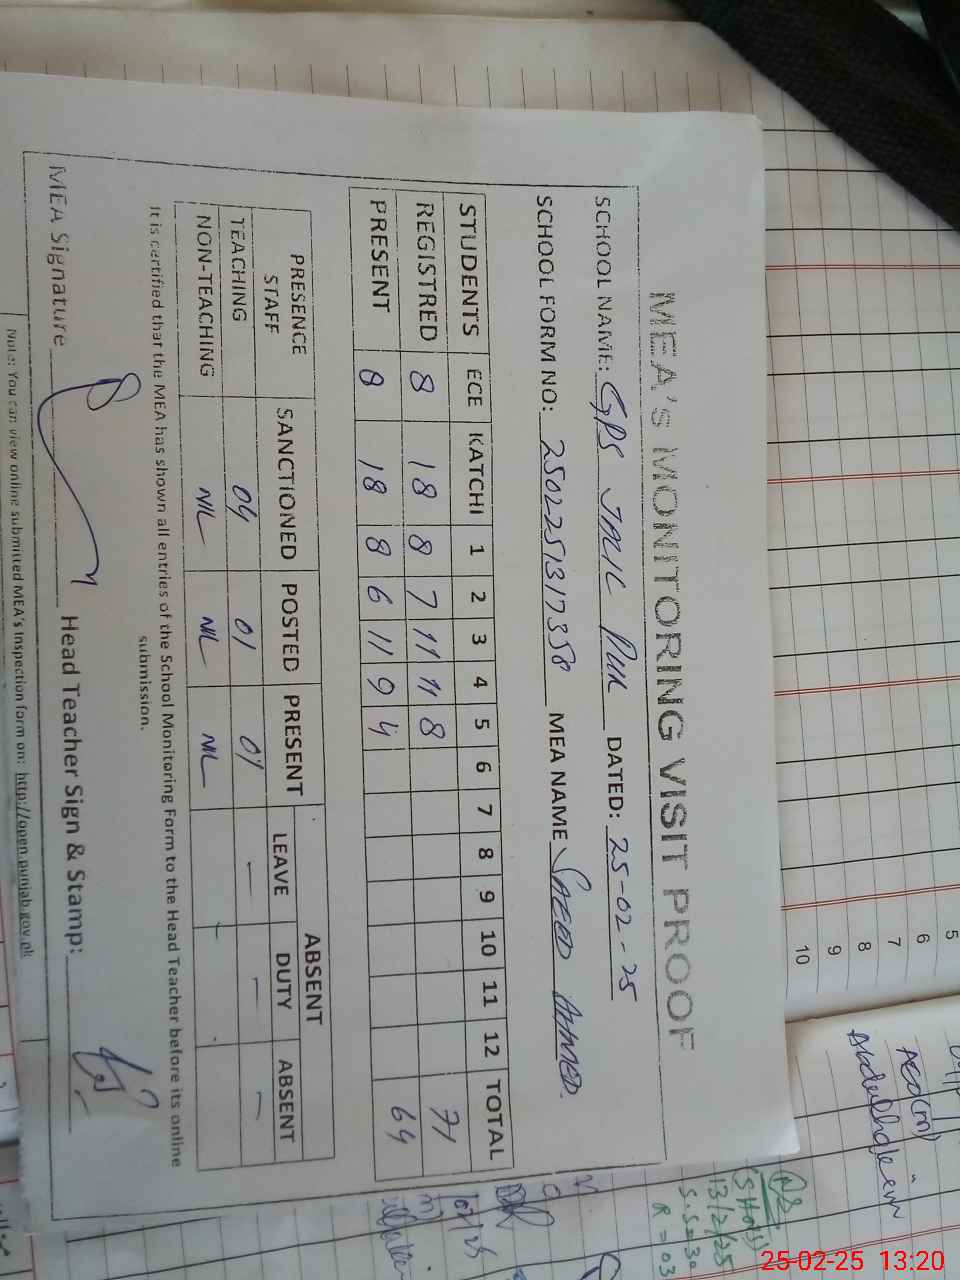 MEA's MONITORING VISIT PROOF
SCHOOL NAME: GPS DATED: 25-02-25
SCHOOL FORM NO: MEA NAME SAEED AHMED.
STUDENTS ECE KATCHI 1 2 3 4 5 6 7 8 9 10 11 12 TOTAL
REGISTRED 8 18 8 7 11 11 8 71
PRESENT 8 18 8 6 11 9 4 64
PRESENCE STAFF SANCTIONED POSTED PRESENT ABSENT
LEAVE DUTY ABSENT
TEACHING 04 01 01 — — —
NON-TEACHING NIL NIL NIL
It is certified that the MEA has shown all entries of the School Monitoring Form to the Head Teacher before its online
submission.
MEA Signature Head Teacher Sign & Stamp:
Note: You can view online submitted MEA's Inspection form on: http://open.punjab.gov.pk
5
6
7
8
9
10
AEO(m)
13/2/25
R = 03
25-02-25 13:20